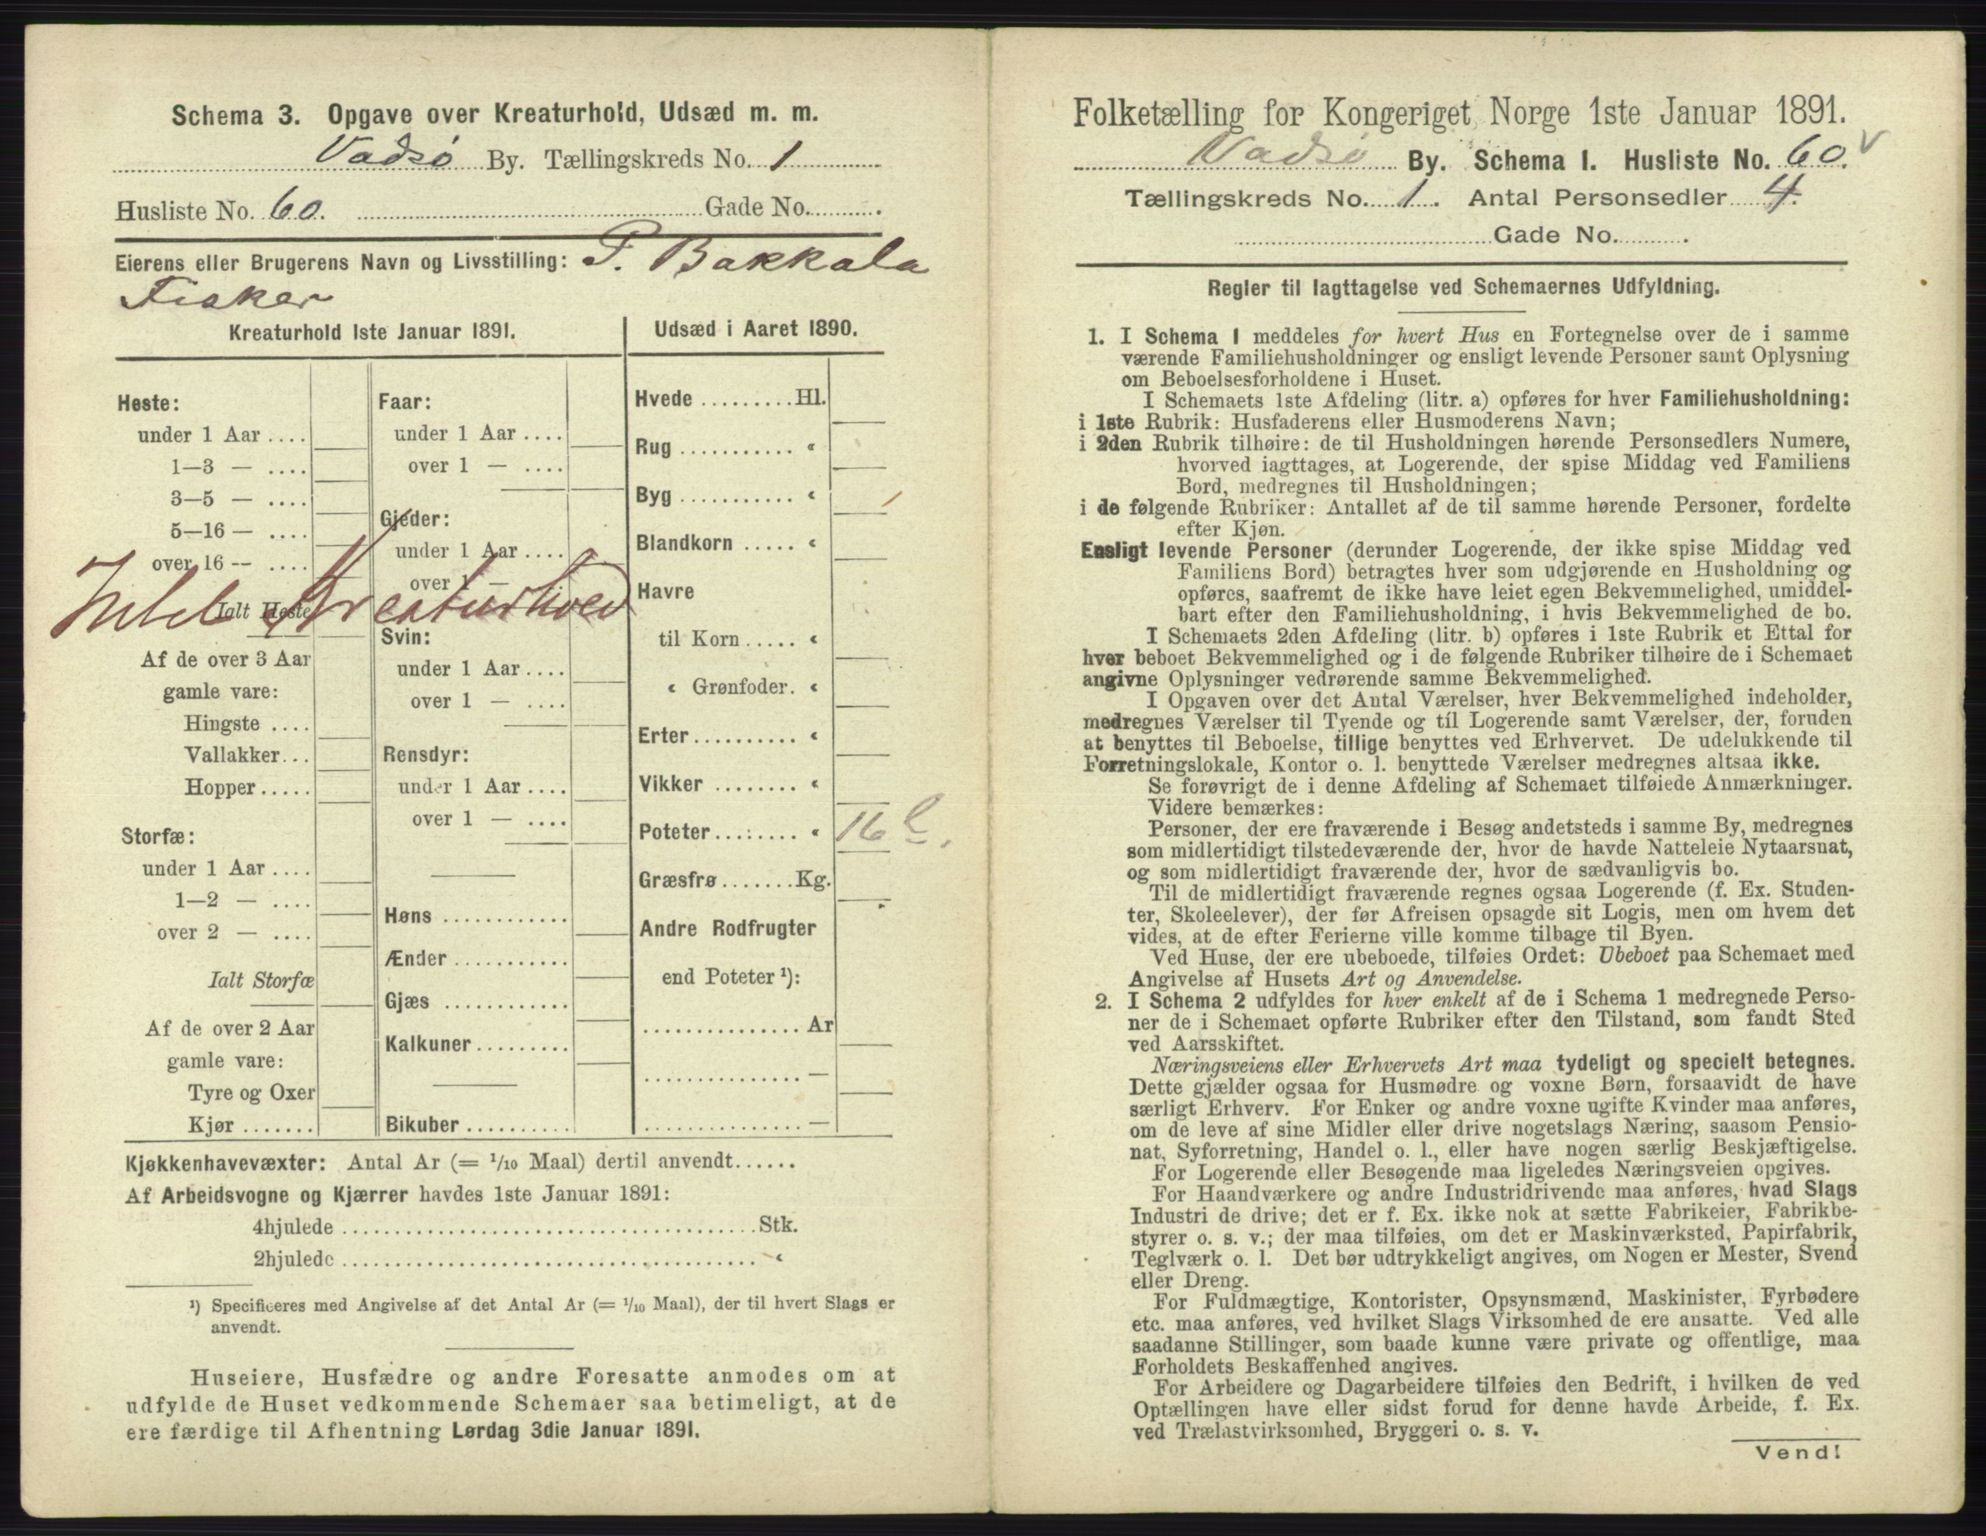 Schema 3. Opgave over Kreaturhold, Udsæd m. m.
Vadsø By. Tællingskreds No. 1
Husliste No. 60. Gade No. .
Eierens eller Brugerens Navn og Livsstilling: P. Bakkala
Fisker
Kreaturhold 1ste Januar 1891.
Heste:
under 1 Aar ....
1—3 — ....
3—5 — ....
5—16 — ....
over 16 -- ....
Ialt Heste
Af de over 3 Aar
gamle vare:
Hingste ....
Vallakker...
Hopper .....
Storfæ:
under 1 Aar ....
1—2 — ....
over 2 — ....
Ialt Storfæ
Af de over 2 Aar
gamle vare:
Tyre og Oxer
Kjør .......
Faar:
under 1 Aar ....
over 1 — ....
Gjeder:
under 1 Aar ....
over 1 —
Kreaturhold
Svin:
under 1 Aar ....
over 1 — ....
Rensdyr:
under 1 Aar ....
over 1 — ....
Høns ............
Ænder ...........
Gjæs ............
Kalkuner.........
Bikuber ..........
Udsæd i Aaret 1890.
Hvede .........Hl.
Rug ........... «
Byg ............ «
Blandkorn ..... «
Havre
til Korn ..... «
« Grønfoder. «
Erter.......... «
Vikker ........ «
Poteter........ « 16 l.
Græsfrø.......Kg.
Andre Rodfrugter
end Poteter ¹):
............... Ar
............... —
............... —
Kjøkkenhavevæxter: Antal Ar (= 1/10 Maal) dertil anvendt......
Af Arbeidsvogne og Kjærrer havdes 1ste Januar 1891:
4hjulede ........................................Stk.
2hjulede ........................................ «
¹) Specificeres med Angivelse af det Antal Ar (= 1/10 Maal), der til hvert Slags er
anvendt.
Huseiere, Husfædre og andre Foresatte anmodes om at
udfylde de Huset vedkommende Schemaer saa betimeligt, at de
ere færdige til Afhentning Lørdag 3die Januar 1891.
Folketælling for Kongeriget Norge 1ste Januar 1891.
Vadsø By. Schema 1. Husliste No. 60.
Tællingskreds No. 1. Antal Personsedler 4.
Gade No. .
Regler til Iagttagelse ved Schemaernes Udfyldning.
1. I Schema 1 meddeles for hvert Hus en Fortegnelse over de i samme
værende Familiehusholdninger og ensligt levende Personer samt Oplysning
om Beboelsesforholdene i Huset.
I Schemaets 1ste Afdeling (litr. a) opføres for hver Familiehusholdning:
i 1ste Rubrik: Husfaderens eller Husmoderens Navn;
i 2den Rubrik tilhøire: de til Husholdningen hørende Personsedlers Numere,
hvorved iagttages, at Logerende, der spise Middag ved Familiens
Bord, medregnes til Husholdningen;
i de følgende Rubriker: Antallet af de til samme hørende Personer, fordelte
efter Kjøn.
Ensligt levende Personer (derunder Logerende, der ikke spise Middag ved
Familiens Bord) betragtes hver som udgjørende en Husholdning og
opføres, saafremt de ikke have leiet egen Bekvemmelighed, umiddel-
bart efter den Familiehusholdning, i hvis Bekvemmelighed de bo.
I Schemaets 2den Afdeling (litr. b) opføres i 1ste Rubrik et Ettal for
hver beboet Bekvemmelighed og i de følgende Rubriker tilhøire de i Schemaet
angivne Oplysninger vedrørende samme Bekvemmelighed.
I Opgaven over det Antal Værelser, hver Bekvemmelighed indeholder,
medregnes Værelser til Tyende og til Logerende samt Værelser, der, foruden
at benyttes til Beboelse, tillige benyttes ved Erhvervet. De udelukkende til
Forretningslokale, Kontor o. l. benyttede Værelser medregnes altsaa ikke.
Se forøvrigt de i denne Afdeling af Schemaet tilføiede Anmærkninger.
Videre bemærkes:
Personer, der ere fraværende i Besøg andetsteds i samme By, medregnes
som midlertidigt tilstedeværende der, hvor de havde Natteleie Nytaarsnat,
og som midlertidigt fraværende der, hvor de sædvanligvis bo.
Til de midlertidigt fraværende regnes ogsaa Logerende (f. Ex. Studen-
ter, Skoleelever), der før Afreisen opsagde sit Logis, men om hvem det
vides, at de efter Ferierne ville komme tilbage til Byen.
Ved Huse, der ere ubeboede, tilføies Ordet: Ubeboet paa Schemaet med
Angivelse af Husets Art og Anvendelse.
2. I Schema 2 udfyldes for hver enkelt af de i Schema 1 medregnede Perso-
ner de i Schemaet opførte Rubriker efter den Tilstand, som fandt Sted
ved Aarsskiftet.
Næringsveiens eller Erhvervets Art maa tydeligt og specielt betegnes.
Dette gjælder ogsaa for Husmødre og voxne Børn, forsaavidt de have
særligt Erhverv. For Enker og andre voxne ugifte Kvinder maa anføres,
om de leve af sine Midler eller drive nogetslags Næring, saasom Pensio-
nat, Syforretning, Handel o. l., eller have nogen særlig Beskjæftigelse.
For Logerende eller Besøgende maa ligeledes Næringsveien opgives.
For Haandværkere og andre Industridrivende maa anføres, hvad Slags
Industri de drive; det er f. Ex. ikke nok at sætte Fabrikeier, Fabrikbe-
styrer o. s. v.; der maa tilføies, om det er Maskinværksted, Papirfabrik,
Teglværk o. l. Det bør udtrykkeligt angives, om Nogen er Mester, Svend
eller Dreng.
For Fuldmægtige, Kontorister, Opsynsmænd, Maskinister, Fyrbødere
etc. maa anføres, ved hvilket Slags Virksomhed de ere ansatte. Ved alle
saadanne Stillinger, som baade kunne være private og offentlige, maa
Forholdets Beskaffenhed angives.
For Arbeidere og Dagarbeidere tilføies den Bedrift, i hvilken de ved
Optællingen have eller sidst forud for denne havde Arbeide, f. Ex.
ved Trælastvirksomhed, Bryggeri o. s. v.
Vend!